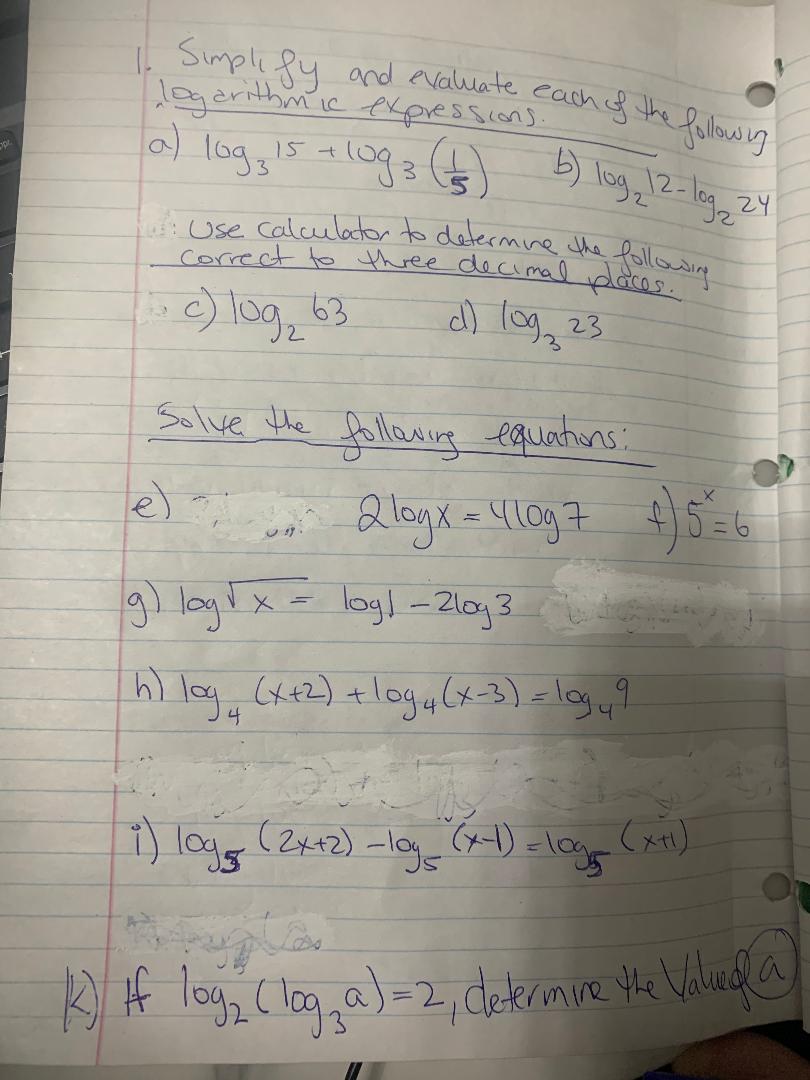 1. Simplify and evaluate each of the following
logarithmic expressions.
a) log₃ 15 + log₃ (1/5) b) log₂ 12 - log₂ 24
Use calculator to determine the following
correct to three decimal places.
c) log₂ 63 d) log₃ 23
Solve the following equations:
e) 2logx = 4log7 f) 5ˣ = 6
g) log√x = log1 - 2log3
h) log₄ (x+2) + log₄(x-3) = log₄ 9
i) log₅ (2x+2) - log₅ (x-1) = log₅ (x+1)
k) If log₂ (log₃ a) = 2, determine the Value of a